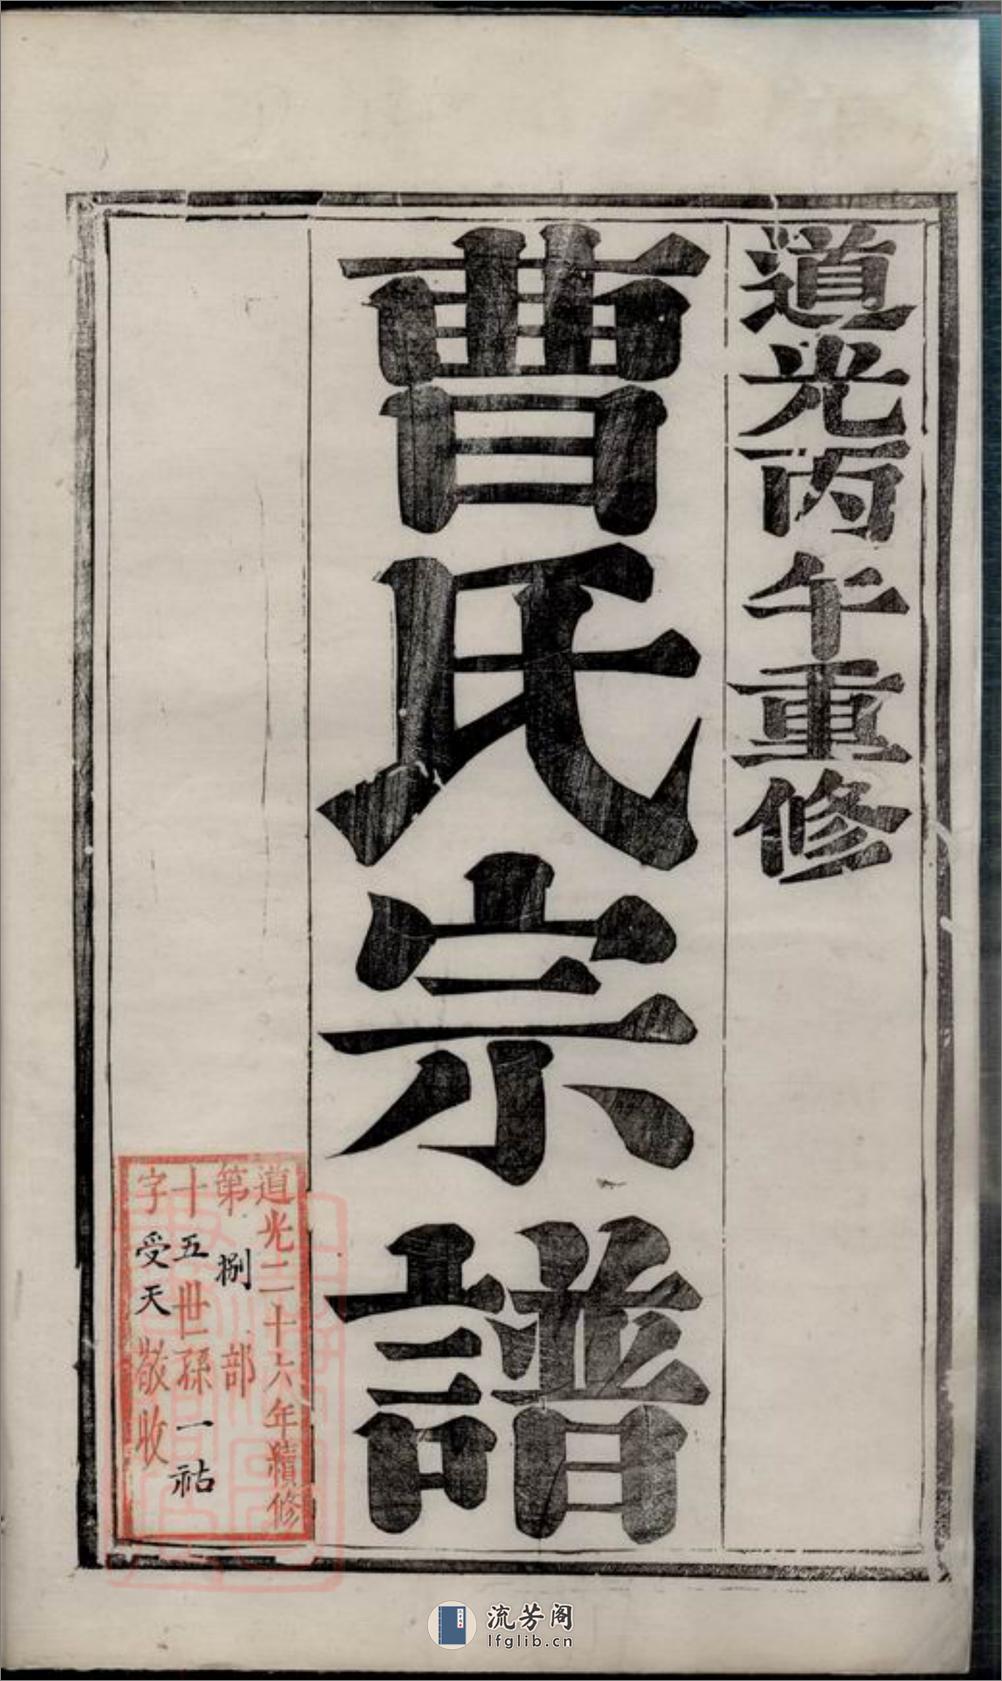 道光丙午重修
曹氏宗譜
道光二十六年續修
第捌部
十五世孫一祜
字受天敬收
流芳阁
lfglib.cn